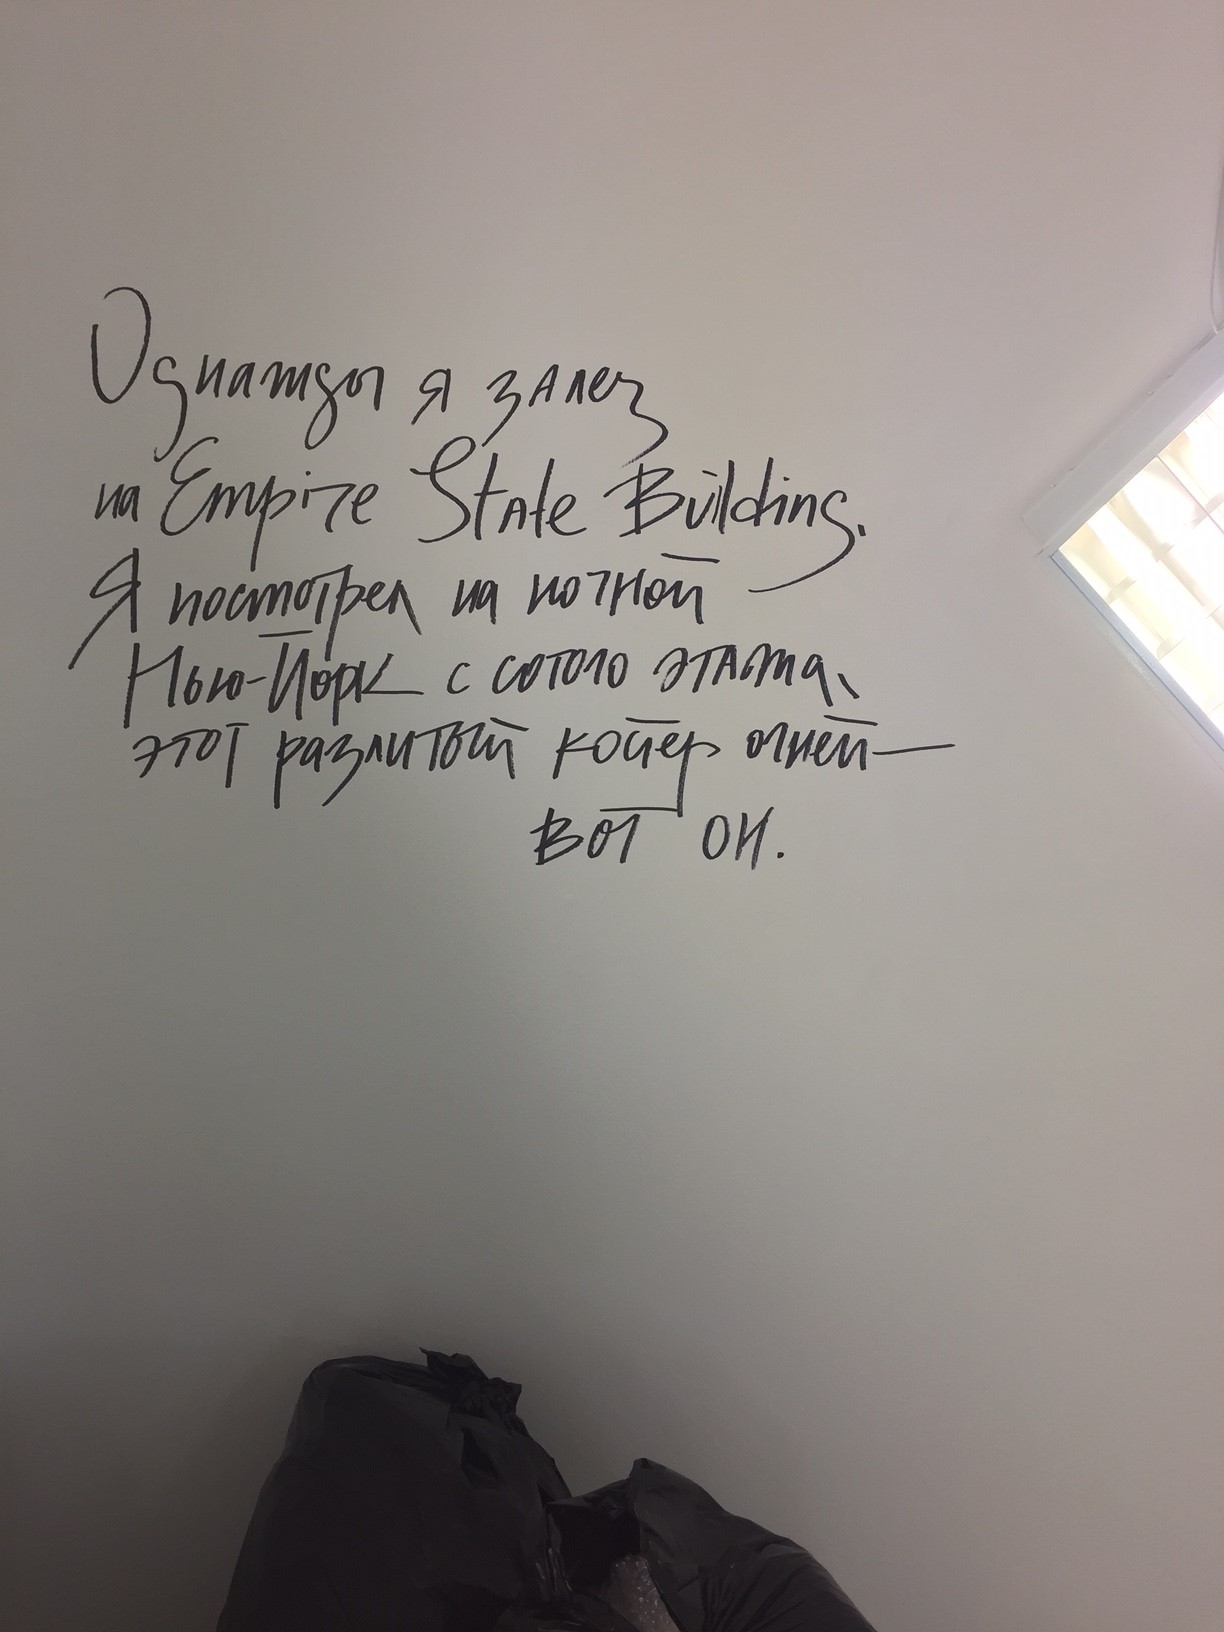 Однажды я залез
на Empire State Building.
Я посмотрел на ночной
Нью-Йорк с сотого этажа,
этот разлитый копёр огней—
вот он.